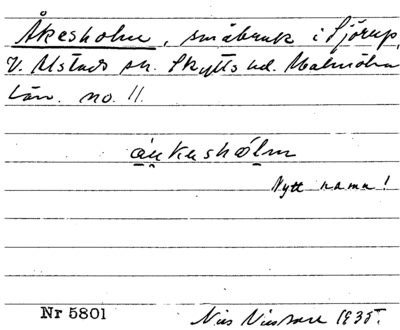 Åkesholm, småbruk i Sjörup,
V. Ustads sn. Skytts hd. Malmöhus
län. no. 11.
áu̯kəshólm
Nytt namn!
Nr 5801
Nils Nilsson 1935.